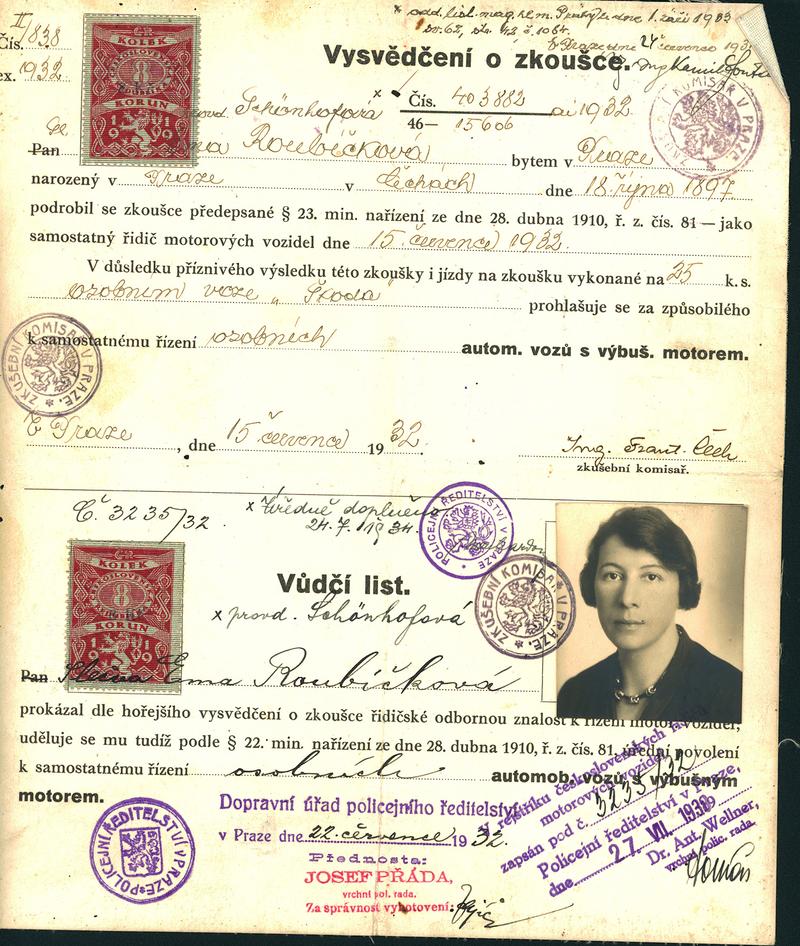 II
Čís. 1838
ex. 1932
x odd. list. mag. hl. m. Prahy ze dne 1. září 1933
Vysvědčení o zkoušce.
KOLEK
8
KORUN
1919
x provd. Schönhofová
Čís. 403882 ai 1932
46— 15606
ZKUŠEBNÍ KOMISAŘ V PRAZE
Pan Ema Roubíčková bytem v Praze
narozený v Praze v Čechách dne 18. října 1897
podrobil se zkoušce předepsané § 23. min. nařízení ze dne 28. dubna 1910, ř. z. čís. 81 — jako
samostatný řidič motorových vozidel dne 15. července 1932.
V důsledku příznivého výsledku této zkoušky i jízdy na zkoušku vykonané na 25 k. s.
osobním voze „Škoda" prohlašuje se za způsobilého
k samostatnému řízení osobních autom. vozů s výbuš. motorem.
ZKUŠEBNÍ KOMISAŘ V PRAZE
V Praze, dne 15. července 1932.
Ing. Frant. Čech
zkušební komisař.
Č. 3235/32
x Úředně doplněno
24. 7. 1934.
POLICEJNÍ ŘEDITELSTVÍ V PRAZE
KOLEK
8
KORUN
1919
Vůdčí list.
ZKUŠEBNÍ KOMISAŘ V PRAZE
x provd. Schönhofová
Pan Ema Roubíčková
prokázal dle hořejšího vysvědčení o zkoušce řidičské odbornou znalost k řízení motor. vozidel,
uděluje se mu tudíž podle § 22. min. nařízení ze dne 28. dubna 1910, ř. z. čís. 81, úřední povolení
k samostatnému řízení osobních automob. vozů s výbušným
motorem.
POLICEJNÍ ŘEDITELSTVÍ V PRAZE
Dopravní úřad policejního ředitelství
v Praze dne 22. července 1932.
Přednosta:
JOSEF PŘÁDA,
vrchní pol. rada.
Za správnost vyhotovení:
rejstříku československých
motorových vozidel
zapsán pod č. 3235/32
Policejní ředitelství v Praze,
dne 27. VII. 1939
Dr. Ant. Wellner,
vrchní polic. rada.